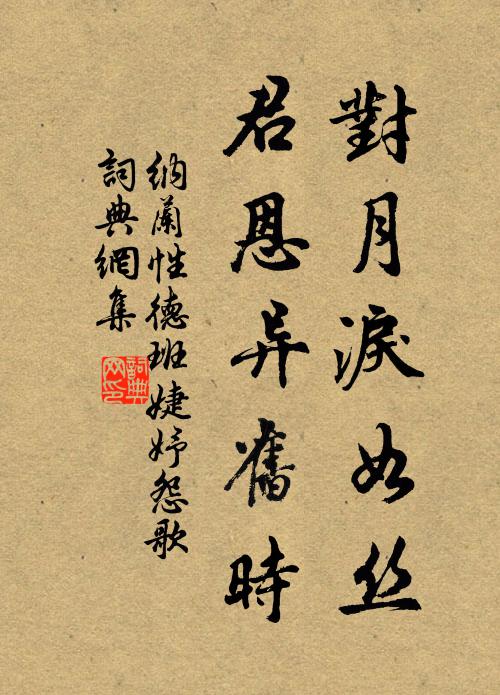 對月淚如丝
君恩异舊時
納蘭性德班婕妤怨歌
詞典網集
詞典网印